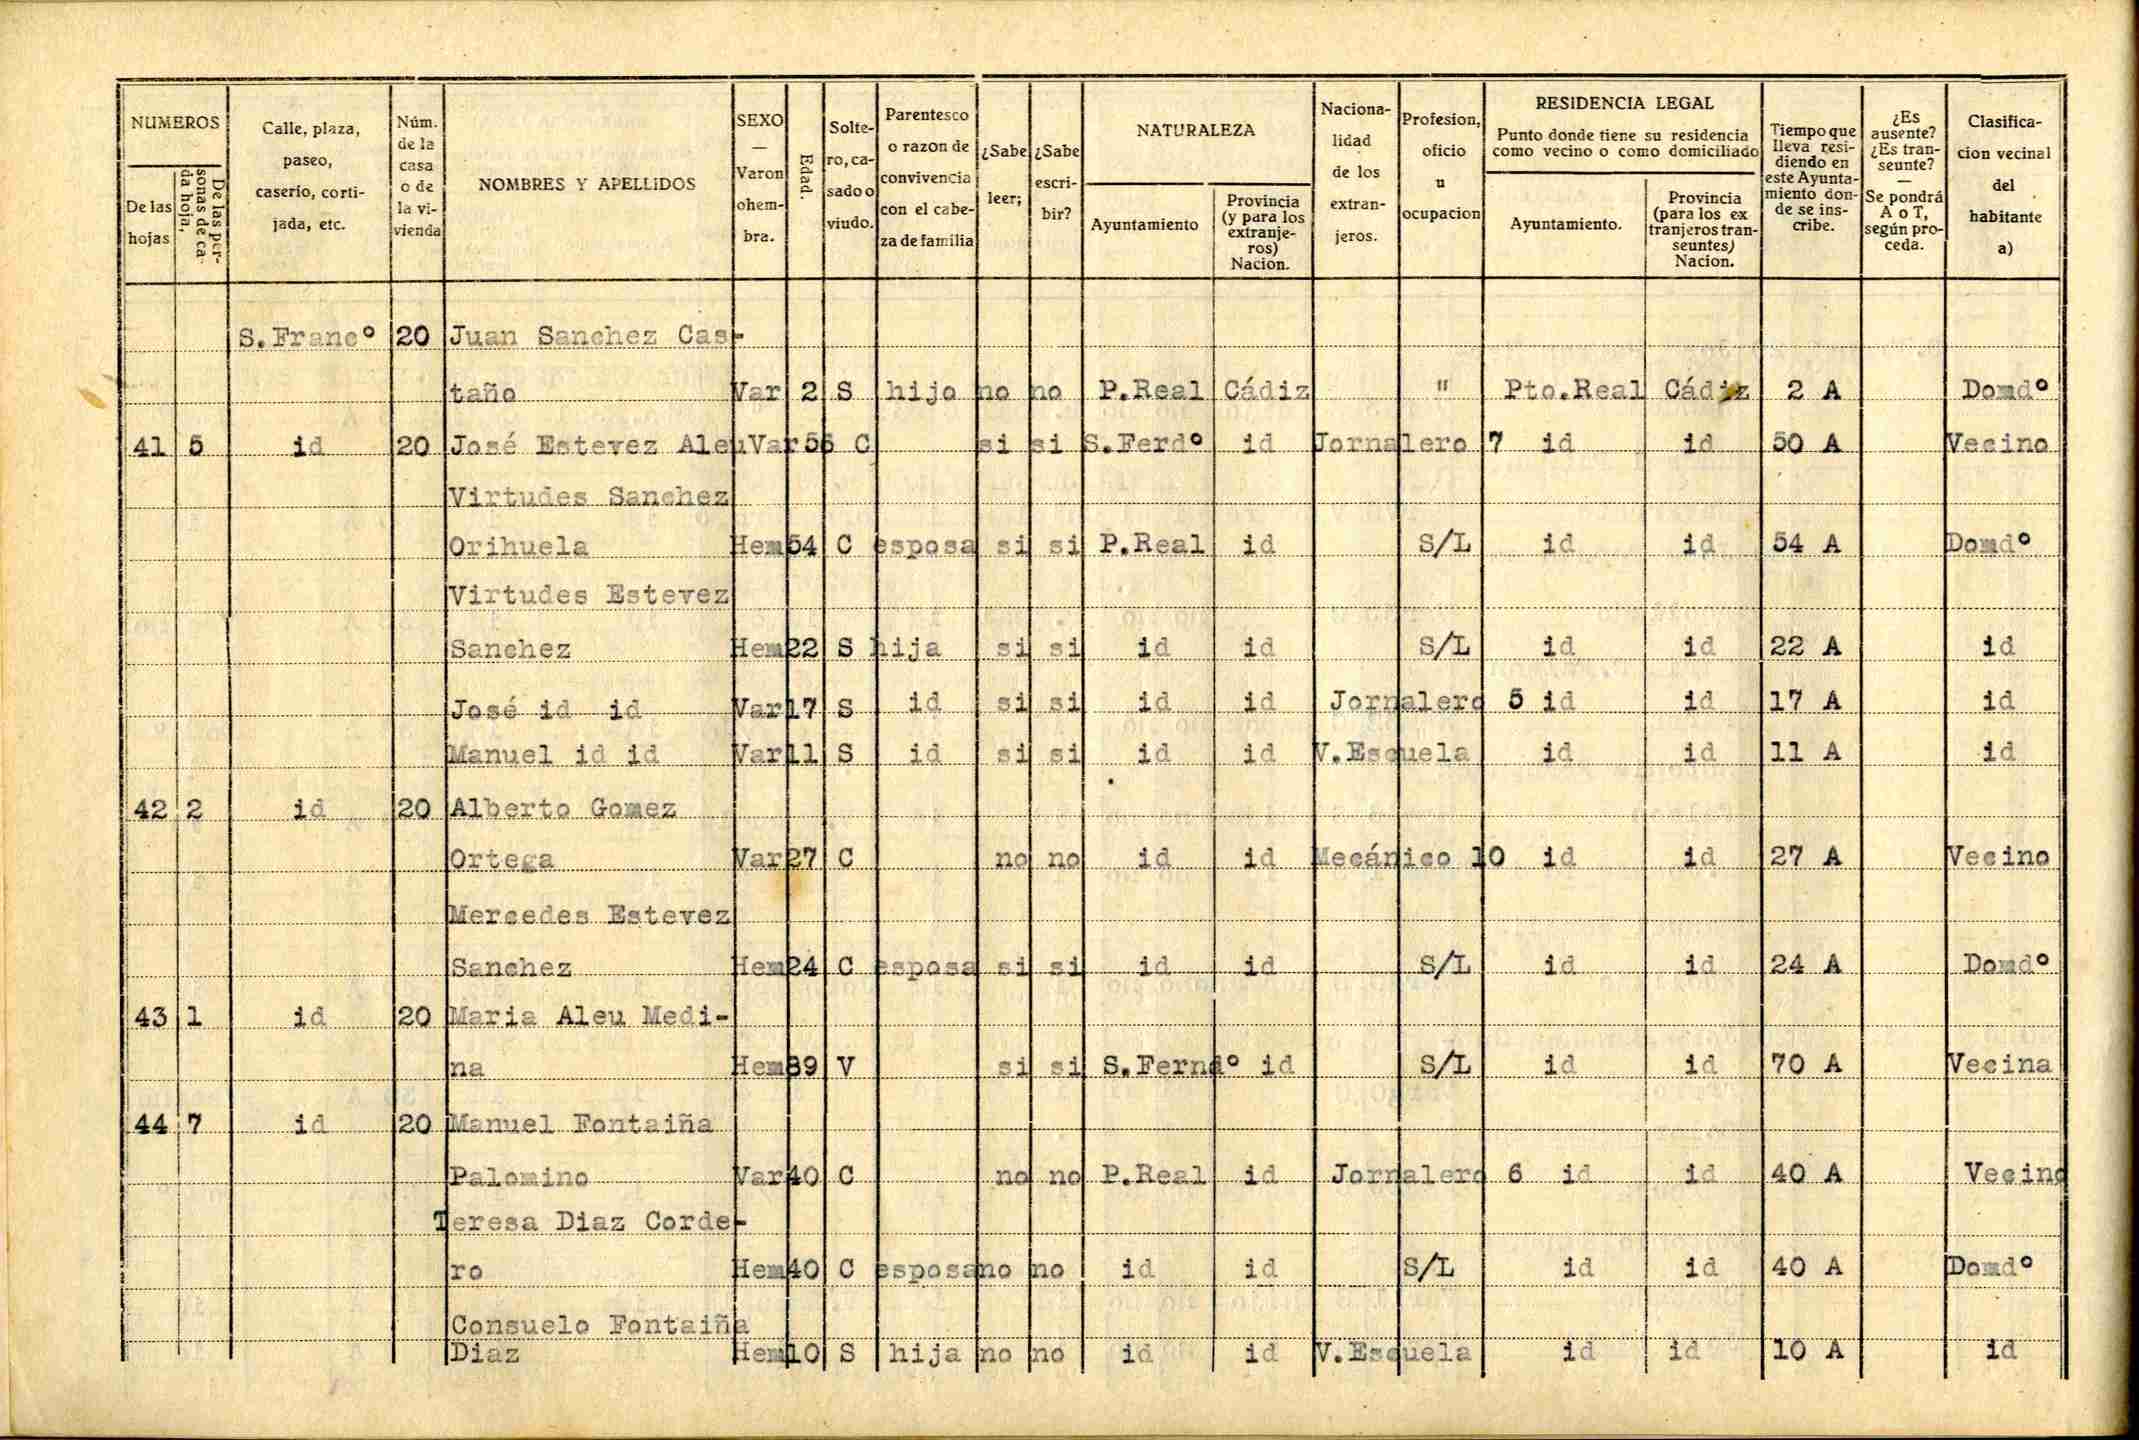 NUMEROS
De las hojas
De las personas de cada hoja.
Calle, plaza, paseo, caserio, cortijada, etc.
Núm. de la casa o de la vivienda
NOMBRES Y APELLIDOS
SEXO — Varon o hembra.
Edad.
Soltero, casado o viudo.
Parentesco o razon de convivencia con el cabeza de familia
¿Sabe leer;
¿Sabe escribir?
NATURALEZA
Ayuntamiento
Provincia (y para los extranjeros) Nacion.
Nacionalidad de los extranjeros.
Profesion, oficio u ocupacion
RESIDENCIA LEGAL
Punto donde tiene su residencia como vecino o como domiciliado
Ayuntamiento.
Provincia (para los extranjeros transeuntes) Nacion.
Tiempo que lleva residiendo en este Ayuntamiento donde se inscribe.
¿Es ausente? ¿Es transeunte? — Se pondrá A o T, según proceda.
Clasificacion vecinal del habitante a)
S.Francº 20 Juan Sanchez Cas-
taño Var 2 S hijo no no P.Real Cádiz " Pto.Real Cádiz 2 A Domdº
41 5 id 20 José Estevez Aleu Var 56 C si si S.Ferdº id Jornalero 7 id id 50 A Vecino
Virtudes Sanchez
Orihuela Hem 54 C esposa si si P.Real id S/L id id 54 A Domdº
Virtudes Estevez
Sanchez Hem 22 S hija si si id id S/L id id 22 A id
José id id Var 17 S id si si id id Jornalero 5 id id 17 A id
Manuel id id Var 11 S id si si id id V.Escuela id id 11 A id
42 2 id 20 Alberto Gomez
Ortega Var 27 C no no id id Mecánico 10 id id 27 A Vecino
Mercedes Estevez
Sanchez Hem 24 C esposa si si id id S/L id id 24 A Domdº
43 1 id 20 Maria Aleu Medi-
na Hem 89 V si si S.Ferndº id S/L id id 70 A Vecina
44 7 id 20 Manuel Fontaiña
Palomino Var 40 C no no P.Real id Jornalero 6 id id 40 A Vecino
Teresa Diaz Corde-
ro Hem 40 C esposa no no id id S/L id id 40 A Domdº
Consuelo Fontaiña
Diaz Hem 10 S hija no no id id V.Escuela id id 10 A id